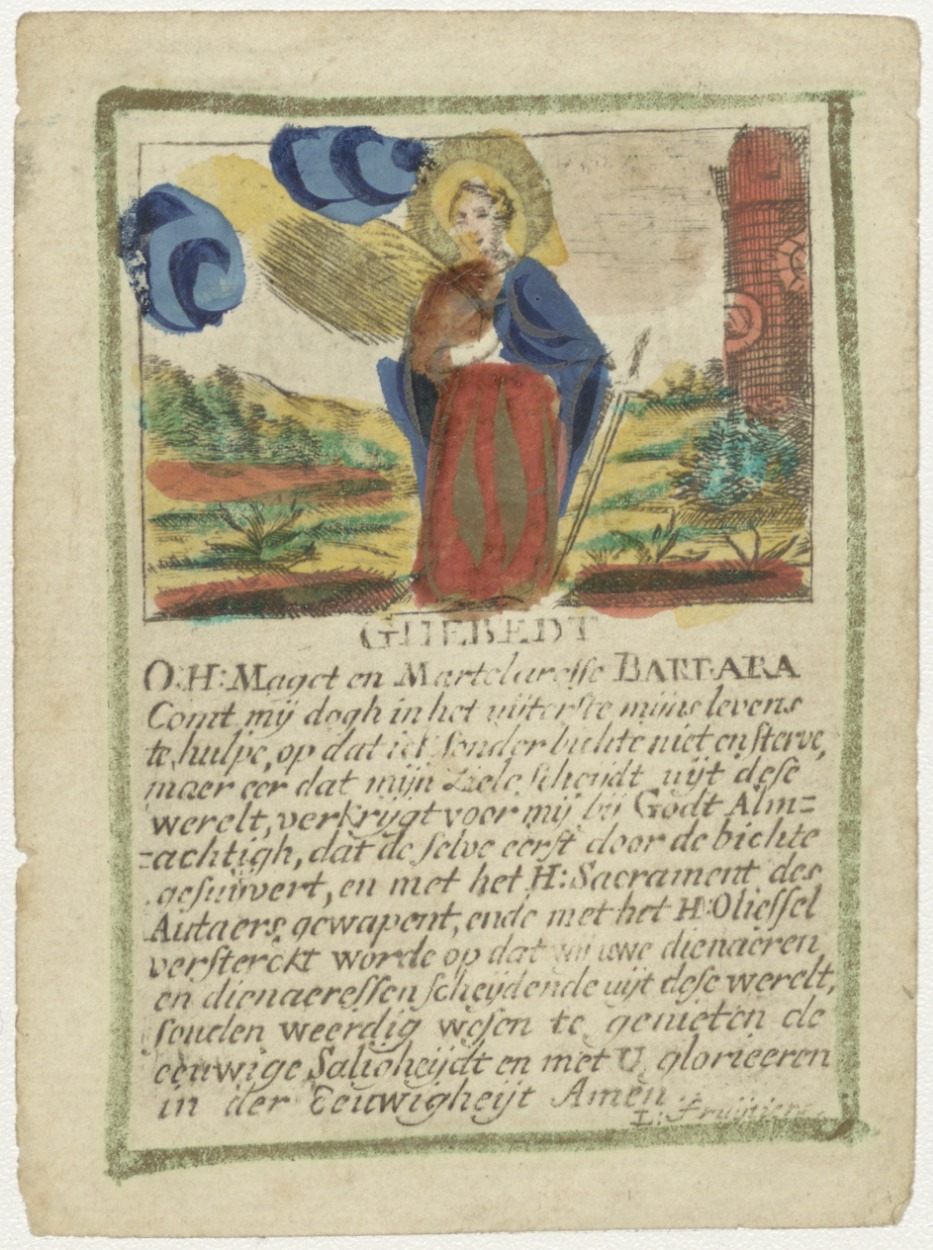 GHEBEDT
O: H: Maget en Martelaresse BARBARA
Comt mij dogh in het uijterste mijns levens
te hulpe, op dat ick sonder bichte niet en sterve,
maer eer dat mijn ziele scheydt uijt dese
werelt, verkrygt voor mij bij Godt Alm=
=achtigh, dat de selve eerst door de bichte
gesuijvert, en met het H: Sacrament des
Autaers gewapent, ende met het H: Oliessel
versterckt worde op dat wij uwe dienaeren
en dienaeressen scheijdende uijt dese werelt,
souden weerdig wesen te genieten de
eeuwige Saligheijdt en met U glorieeren
in der Eeuwigheijt Amen
L. Fruijtiers